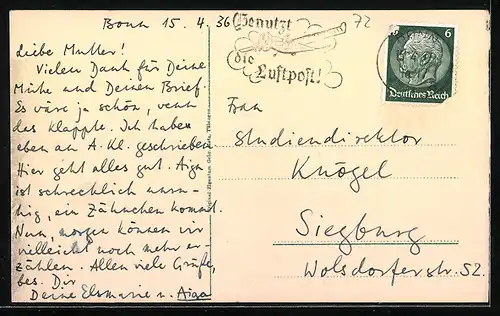 Bonn 15.4.36
Liebe Mutter!
Vielen Dank für Deine
Mühe und Deinen Brief.
Es wäre ja schön, wenn
das klappte. Ich habe
eben an A. Kl. geschrieben.
Hier geht alles gut. Aiga
ist schrecklich unru-
hig, ein Zähnchen kommt.
Nun, morgen können wir
vielleicht noch mehr er-
zählen. Allen viele Grüße,
bes. Dir
Deine Elsmarie u. Aiga
Benutzt
die
Luftpost!
72
6
Deutsches Reich
Frau
Studiendirektor
Knögel
Siegburg
Wolsdorferstr. 52.